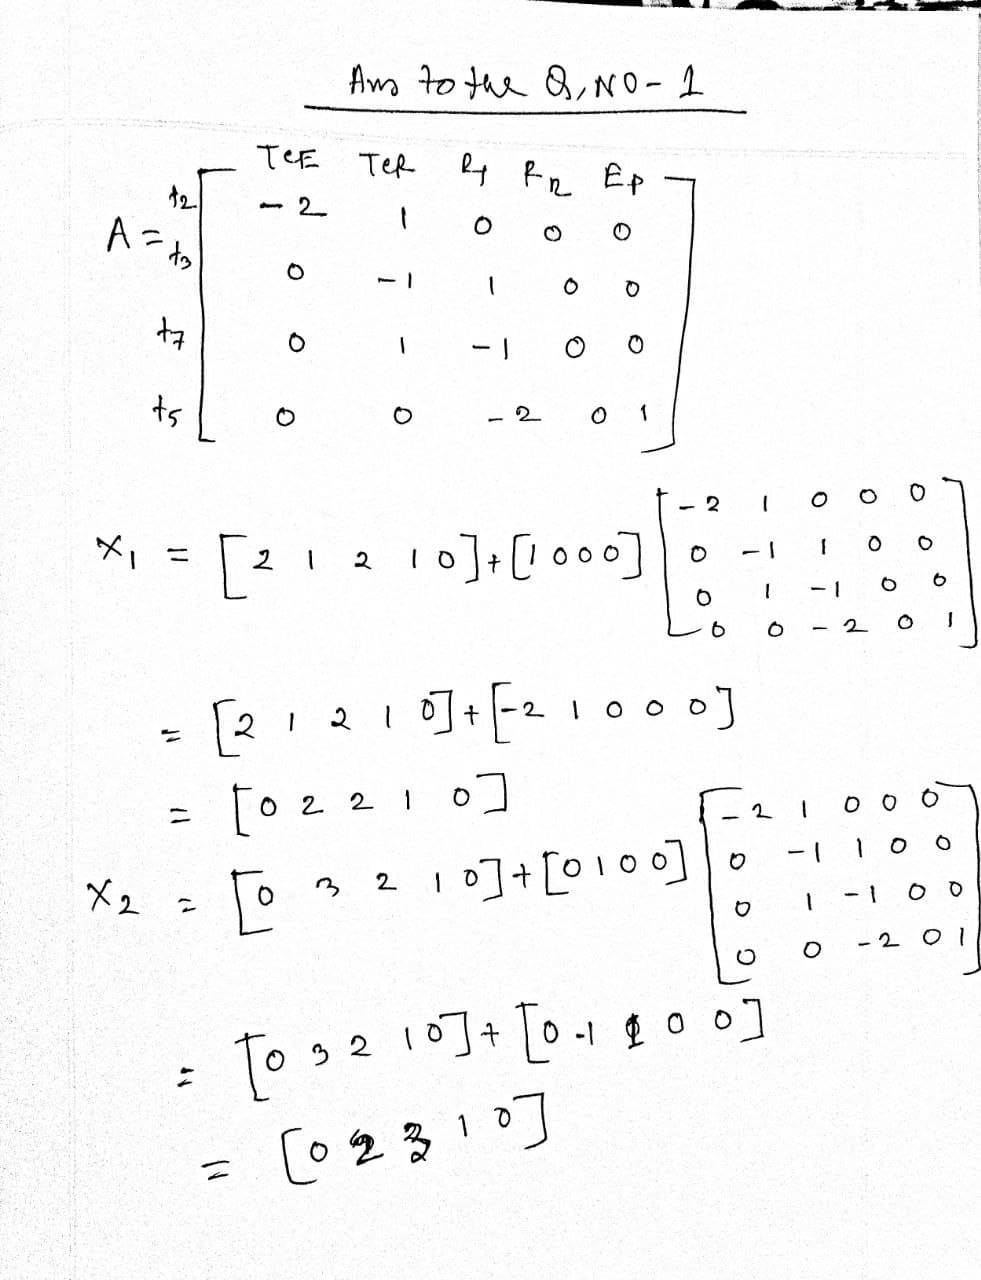 Ans to the Q, NO - 1
TCE TCR R1 Rn EP
t2 -2 1 0 0 0
A =
t3 0 -1 1 0 0
t7 0 1 -1 0 0
t5 0 0 -2 0 1
-2 1 0 0 0
X1 = [2 1 2 1 0] + [1 0 0 0] 0 -1 1 0 0
0 1 -1 0 0
0 0 -2 0 1
= [2 1 2 1 0] + [-2 1 0 0 0]
= [0 2 2 1 0]
-2 1 0 0 0
X2 = [0 3 2 1 0] + [0 1 0 0] 0 -1 1 0 0
0 1 -1 0 0
0 0 -2 0 1
= [0 3 2 1 0] + [0 -1 1 0 0]
= [0 2 3 1 0]